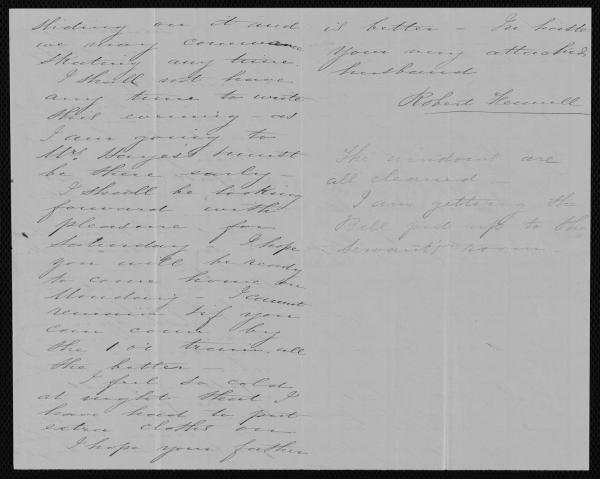 sliding on it and
we may commence
skating any time.
I shall not have
any time to write
this evening - as
I am going to
Mrs. Hayes' & must
be there early -
I shall be looking
forward with
pleasure for
Saturday - I hope
you will be ready
to come home on
Monday - I cannot
remain & if you
can come by
the 1 o'c train all
the better -
I feel so cold
at night that I
have had to put
extra cloths on
I hope your father
is better - In haste
Your very attached
husband
Robert
The windows are
all cleaned -
I am getting the
Bell put up to the
Servants room.